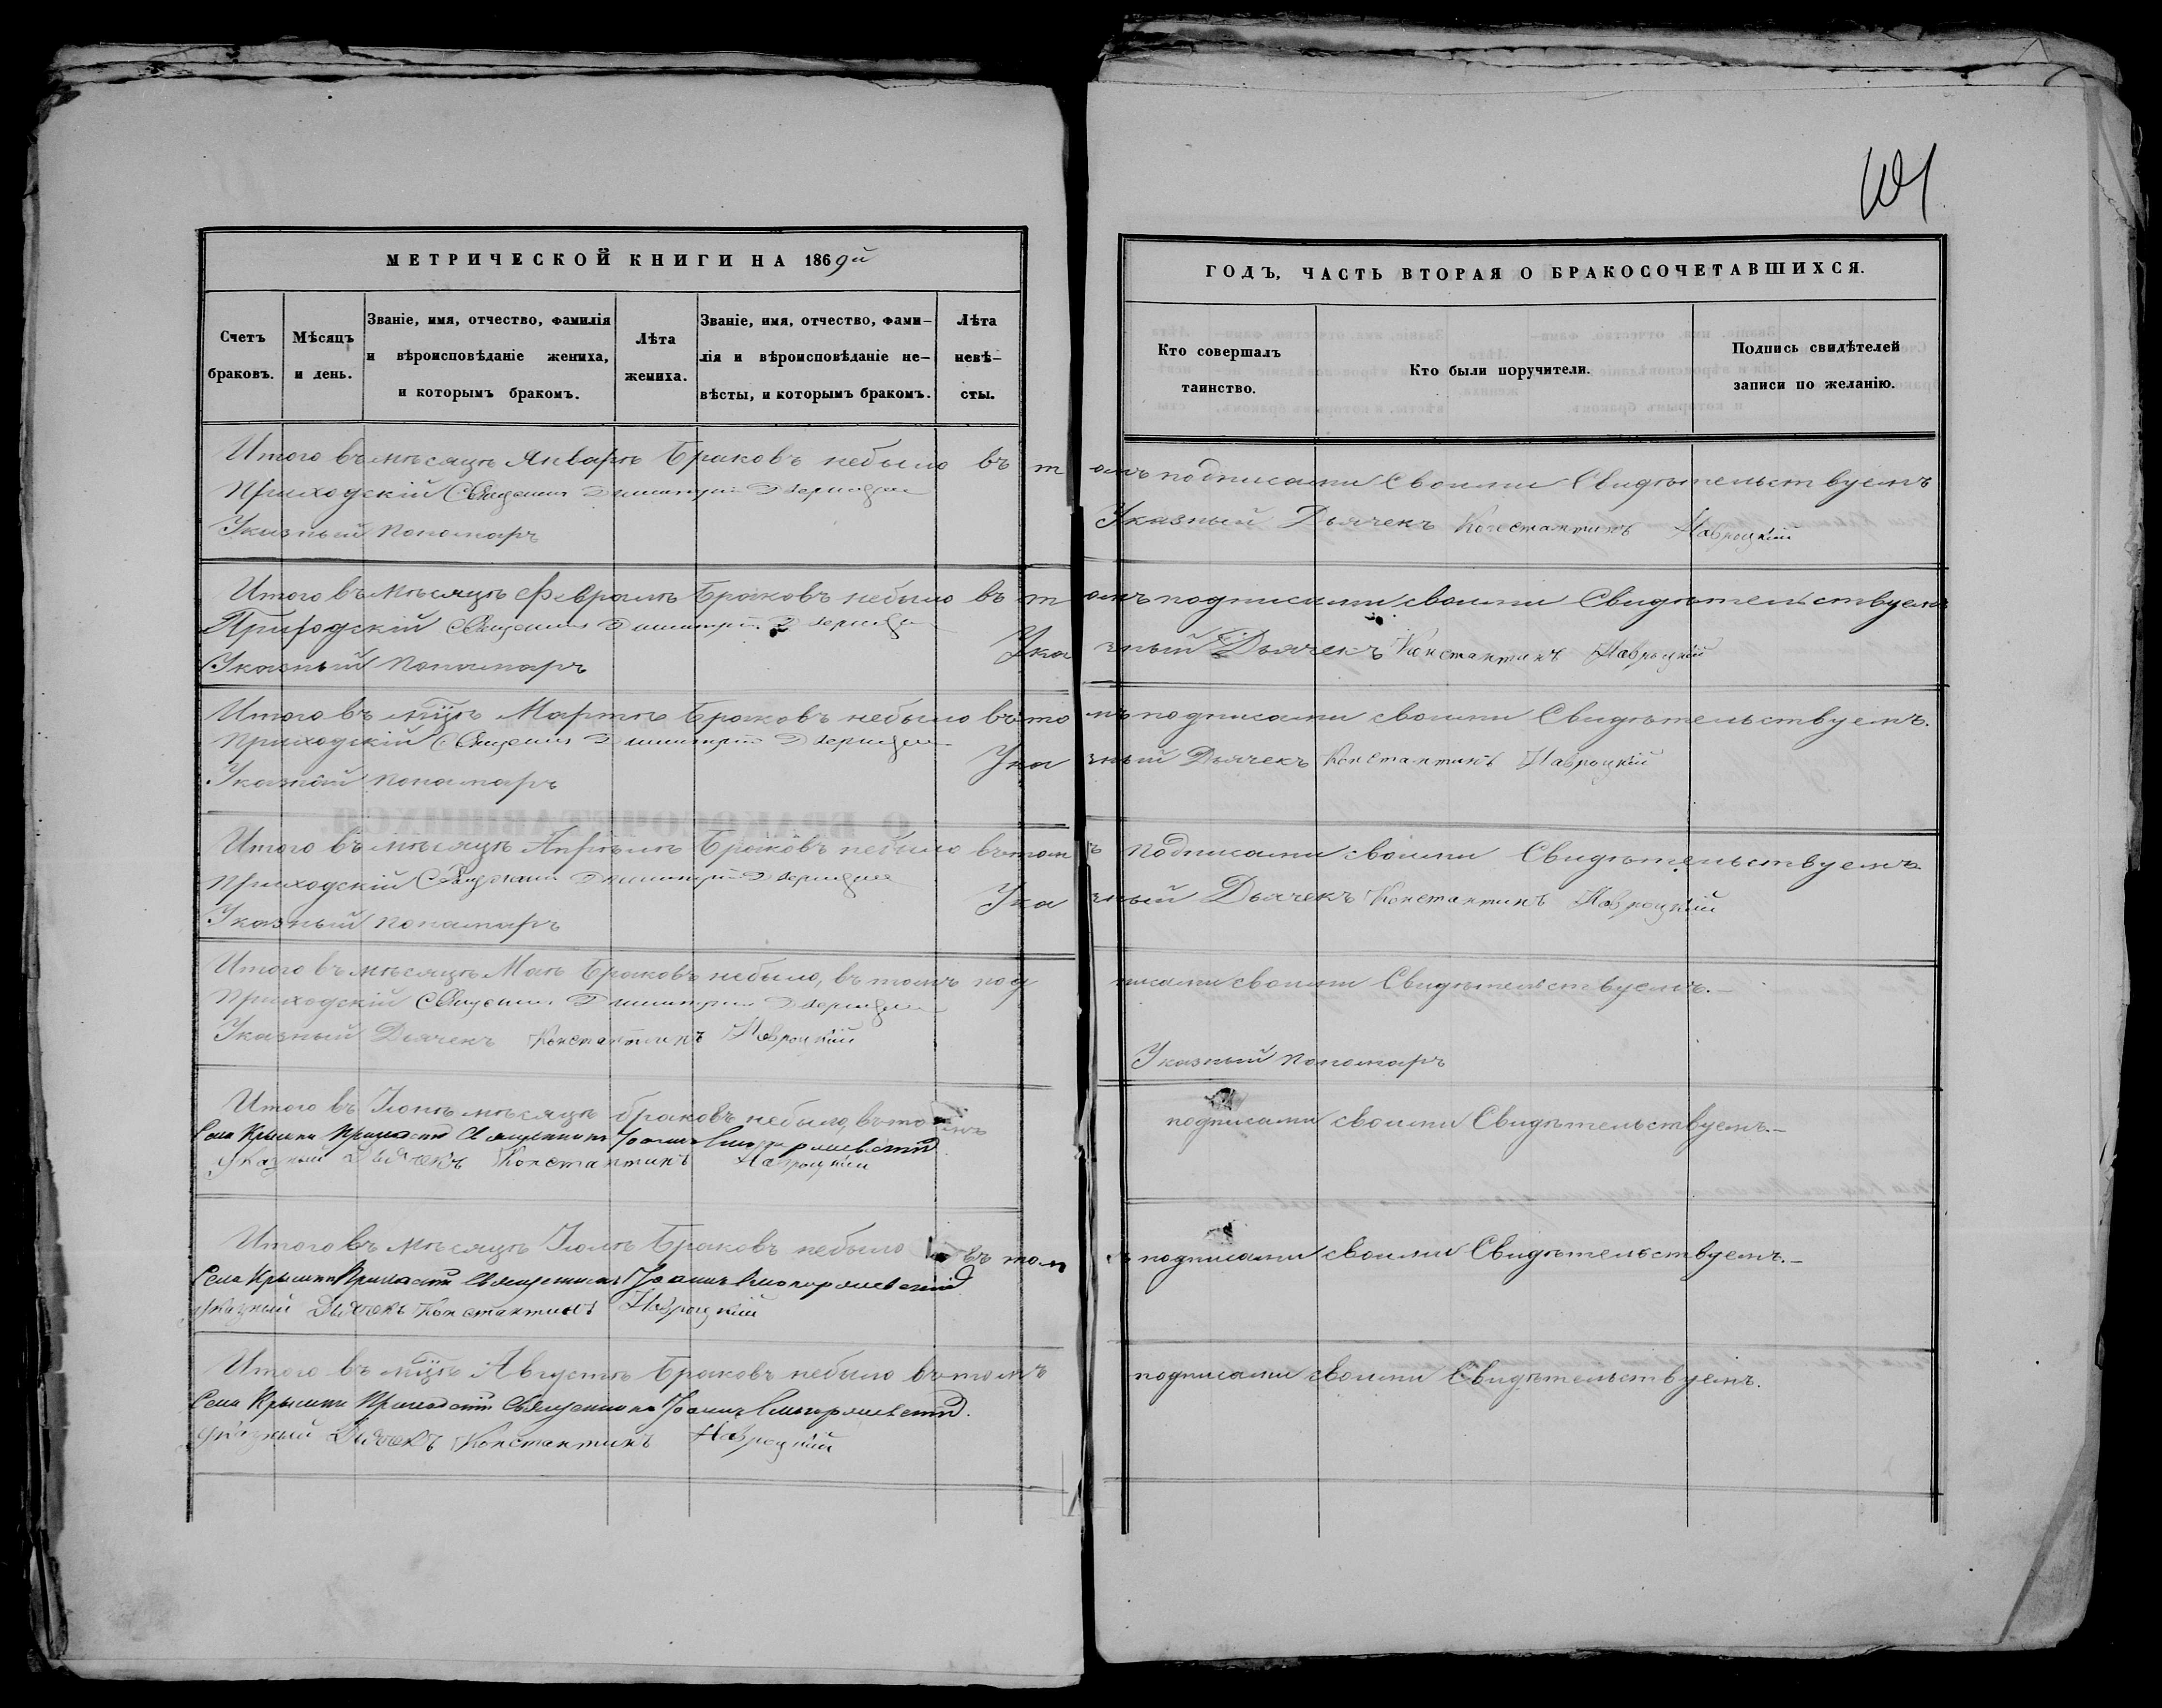 101
МЕТРИЧЕСКОЙ КНИГИ НА 1869й
ГОДЪ, ЧАСТЬ ВТОРАЯ О БРАКОСОЧЕТАВШИХСЯ.
Счетъ браковъ.
Мѣсяцъ и день.
Званіе, имя, отчество, фамилія и вѣроисповѣданіе жениха, и которымъ бракомъ.
Лѣта жениха.
Званіе, имя, отчество, фами-
лія и вѣроисповѣданіе не-
вѣсты, и которымъ бракомъ.
Лѣта невѣ-
сты.
Кто совершалъ таинство.
Кто были поручители.
Подпись свидѣтелей записи по желанію.
Итого въ мѣсяцѣ Январѣ Браковъ небыло въ томъ подписами своими Свидѣтельствуемъ
Приходскій Священникъ Димитрій
Указный Пономарь
Указный Дьячекъ Константинъ Навроцкій
Итого въ мѣсяцѣ Февралѣ Браковъ небыло въ томъ подписами своими Свидѣтельствуемъ
Приходскій Священникъ Димитрій
Указный Пономарь
Указный Дьячекъ Константинъ Навроцкій
Итого въ мѣцѣ Мартѣ Браковъ небыло въ томъ подписами своими Свидѣтельствуемъ.
Приходскій Священникъ Димитрій
Указный Пономарь
Указный Дьячекъ Константинъ Навроцкій
Итого въ мѣсяцѣ Апрѣлѣ Браковъ небыло въ томъ подписами своими Свидѣтельствуемъ
Приходскій Священникъ Димитрій
Указный Пономарь
Указный Дьячекъ Константинъ Навроцкій
Итого въ мѣсяцѣ Маѣ Браковъ небыло, въ томъ подписами своими Свидѣтельствуемъ.
Приходскій Священникъ Димитрій
Указный Дьячекъ Константинъ Навроцкій
Указный Пономарь
Итого въ Іюнѣ мѣсяцѣ браковъ небыло, въ томъ подписами своими Свидѣтельствуемъ.
Села Приходскій Священникъ Іоаннъ
Указный Дьячекъ Константинъ Навроцкій
Итого въ мѣсяцѣ Іюлѣ Браковъ небыло въ томъ подписами своими Свидѣтельствуемъ.
Села Приходскій Священникъ Іоаннъ
Указный Дьячекъ Константинъ Навроцкій
Итого въ мѣцѣ Августѣ Браковъ небыло въ томъ подписами своими Свидѣтельствуемъ.
Села Приходскій Священникъ Іоаннъ
Указный Дьячекъ Константинъ Навроцкій